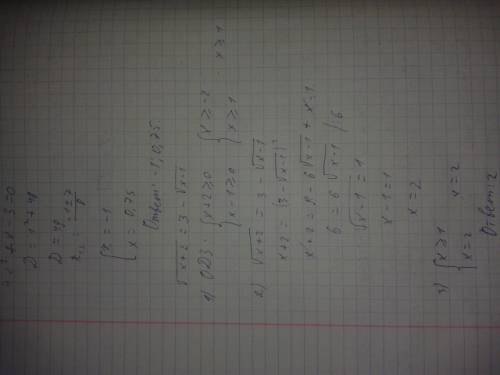 4x² + x - 3 = 0
D = 1² + 48
D = 49
x₁,₂ = (-1 ± 7)/8
[x = -1
x = 0,75
Ответ: -1; 0,75.
√(x+2) = 3 - √(x-1)
1) ОДЗ: {x+2 ≥ 0 {x ≥ -2 x ≥ 1
x-1 ≥ 0 x ≥ 1
2) √(x+2) = 3 - √(x-1)
x+2 = (3 - √(x-1))²
x+2 = 9 - 6√(x-1) + x-1
6 = 6√(x-1) |:6
√(x-1) = 1
x-1 = 1
x = 2
3) {x ≥ 1
x = 2 x = 2
Ответ: 2